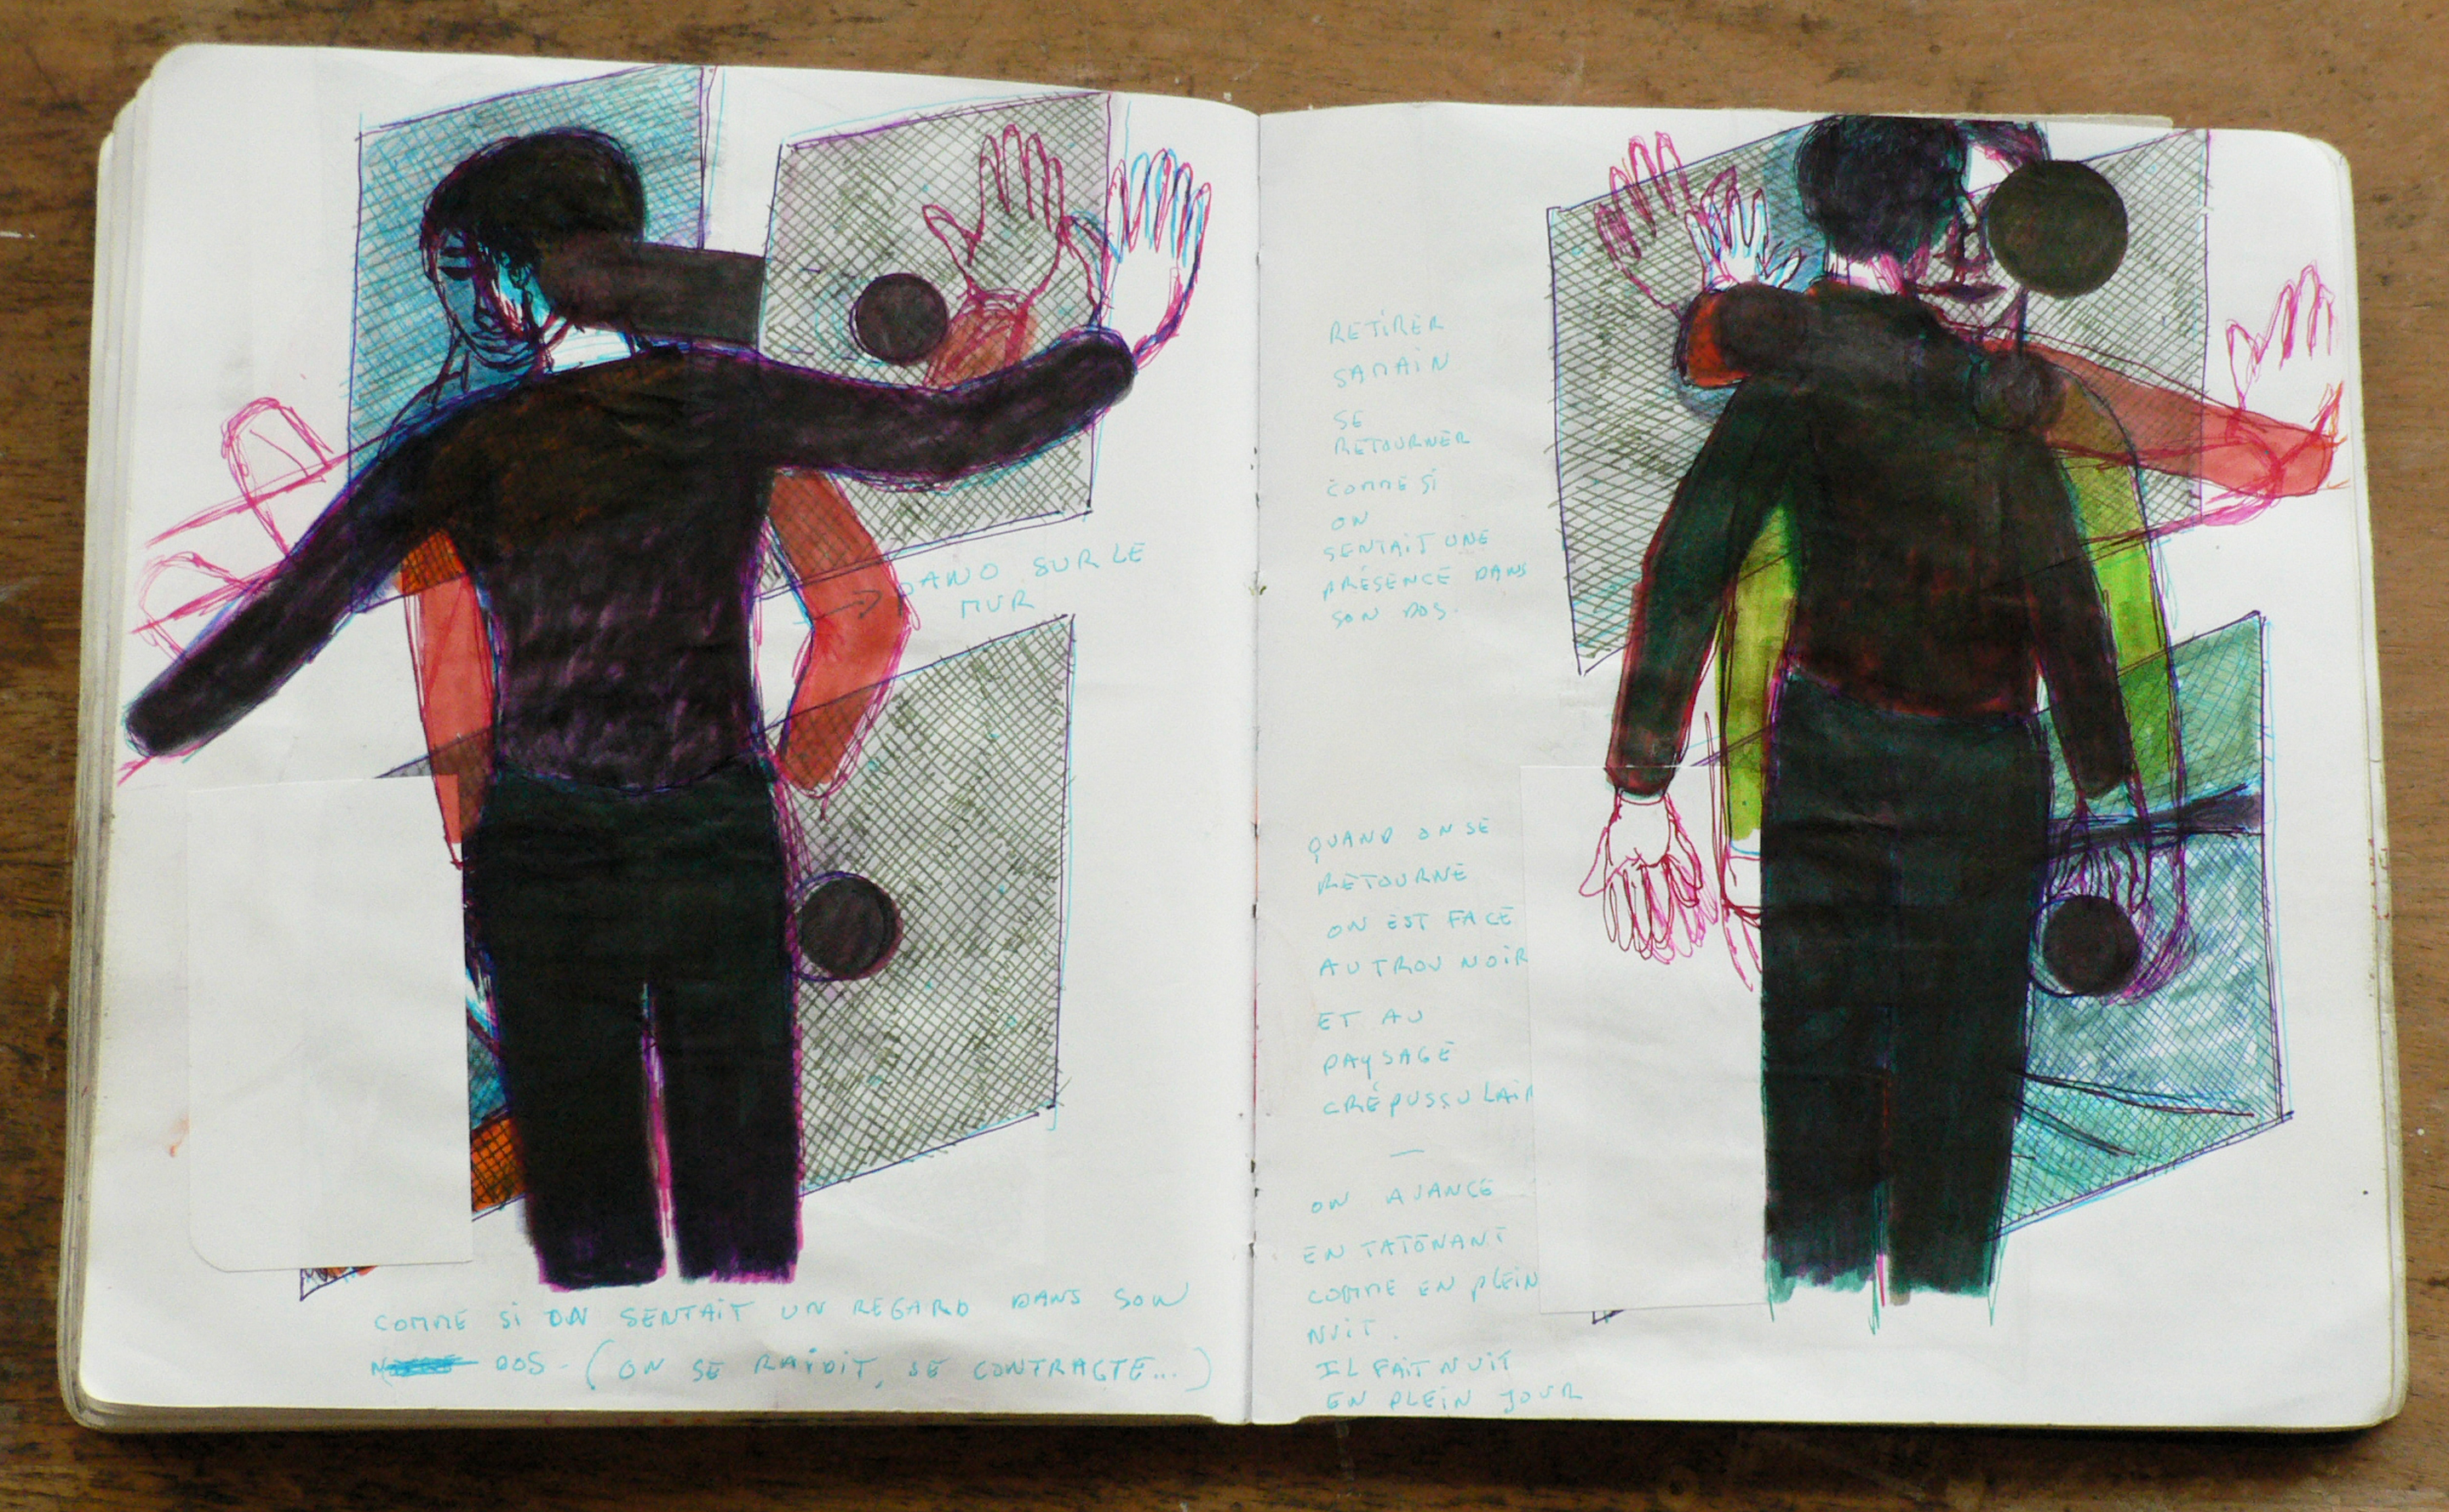 PANO SUR LE
MUR
COMME Si ON SENTAiT UN REGARD DANS SON
DOS - (ON SE RAiDiT, SE CONTRACTE...)
RETiRER
SA MAiN
SE
RETOURNER
COMME Si
ON
SENTAiT UNE
PRÉSENCE DANS
SON DOS.
QUAND ON SE
RETOURNE
ON EST FACE
AU TROU NOIR
ET AU
PAYSAGE
CRÉPUSSULAIR
—
ON AVANCE
EN TATÔNANT
COMME EN PLEIN
NUiT.
IL FAiT NUiT
EN PLEiN JOUR